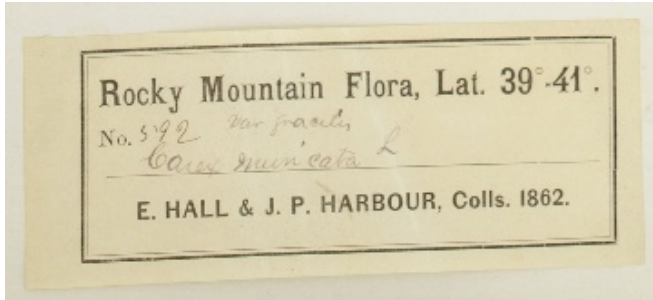 Rocky Mountain Flora, Lat. 39°-41°.
No. 592 var gracilis
Carex muricata L
E. HALL & J. P. HARBOUR, Colls. 1862.